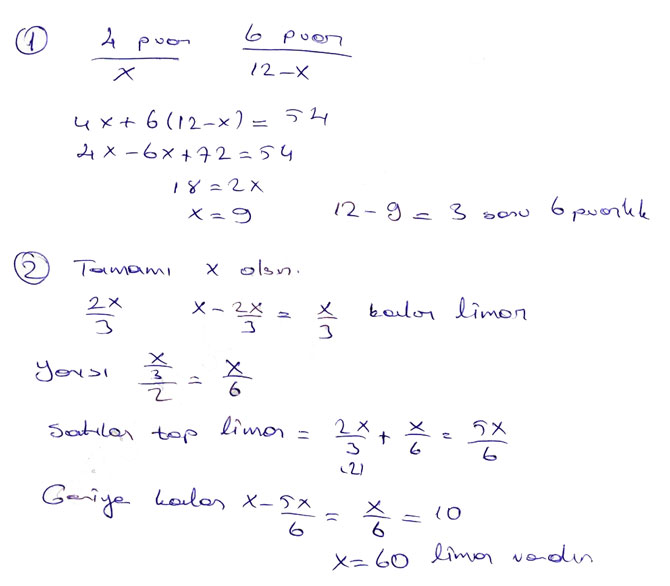 1 4 puan / x 6 puan / 12-x
4x+6(12-x)=54
4x-6x+72=54
18=2x
x=9 12-9=3 soru 6 puanlık
2 Tamamı x olsn.
2x/3 x-2x/3=x/3 kalan limon
yarısı (x/3)/2=x/6
Satılan top limon=2x/3+x/6=5x/6
(2)
Geriye kalan x-5x/6=x/6=10
x=60 limon vardır